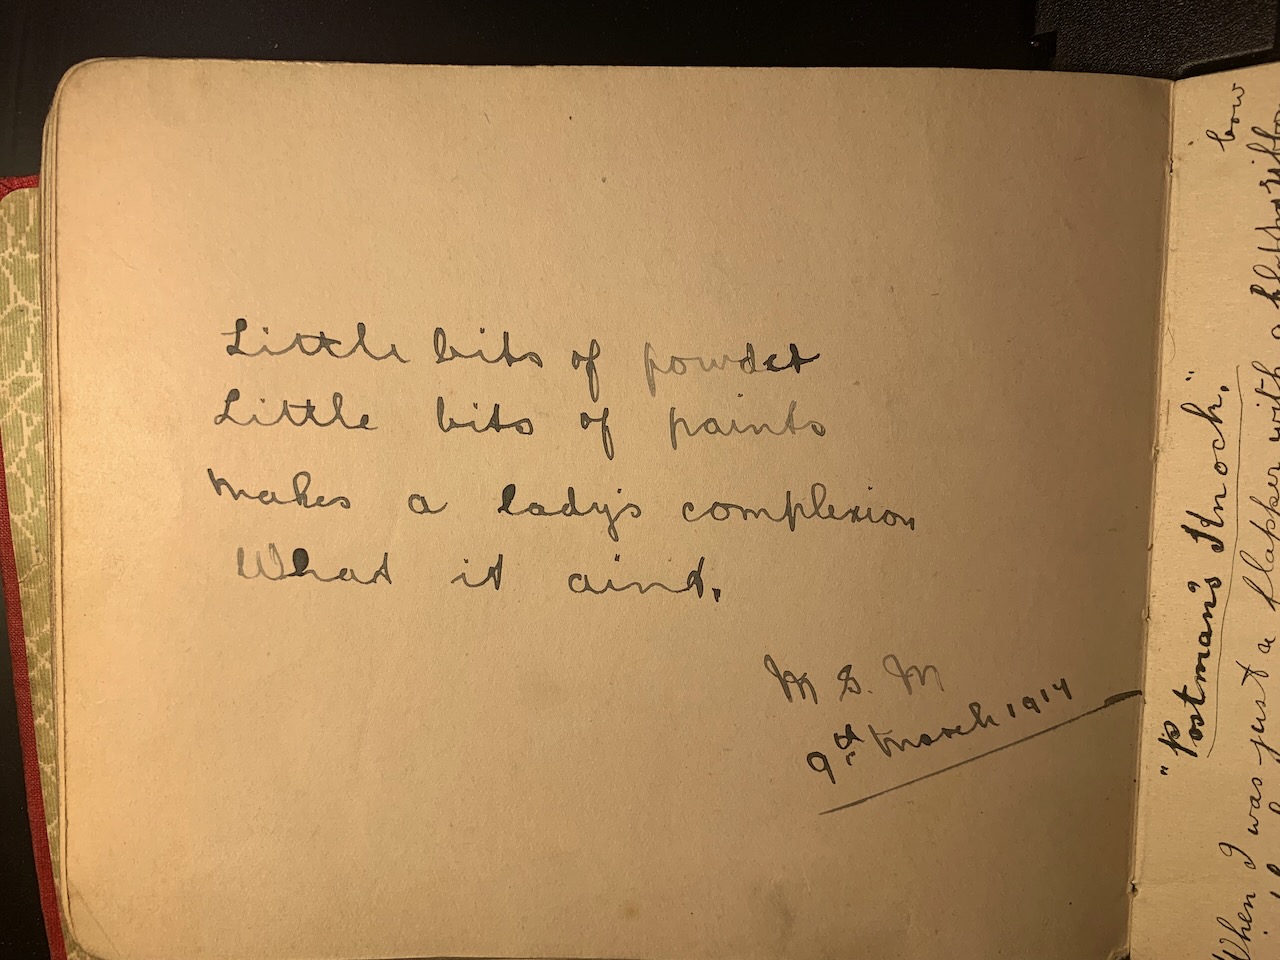 Little bits of powder
Little bits of paints
Makes a lady's complexion
What it aint.
M S. M
9th March 1914
"Postman's Knock."
When I was just a flapper with a flapper
bow